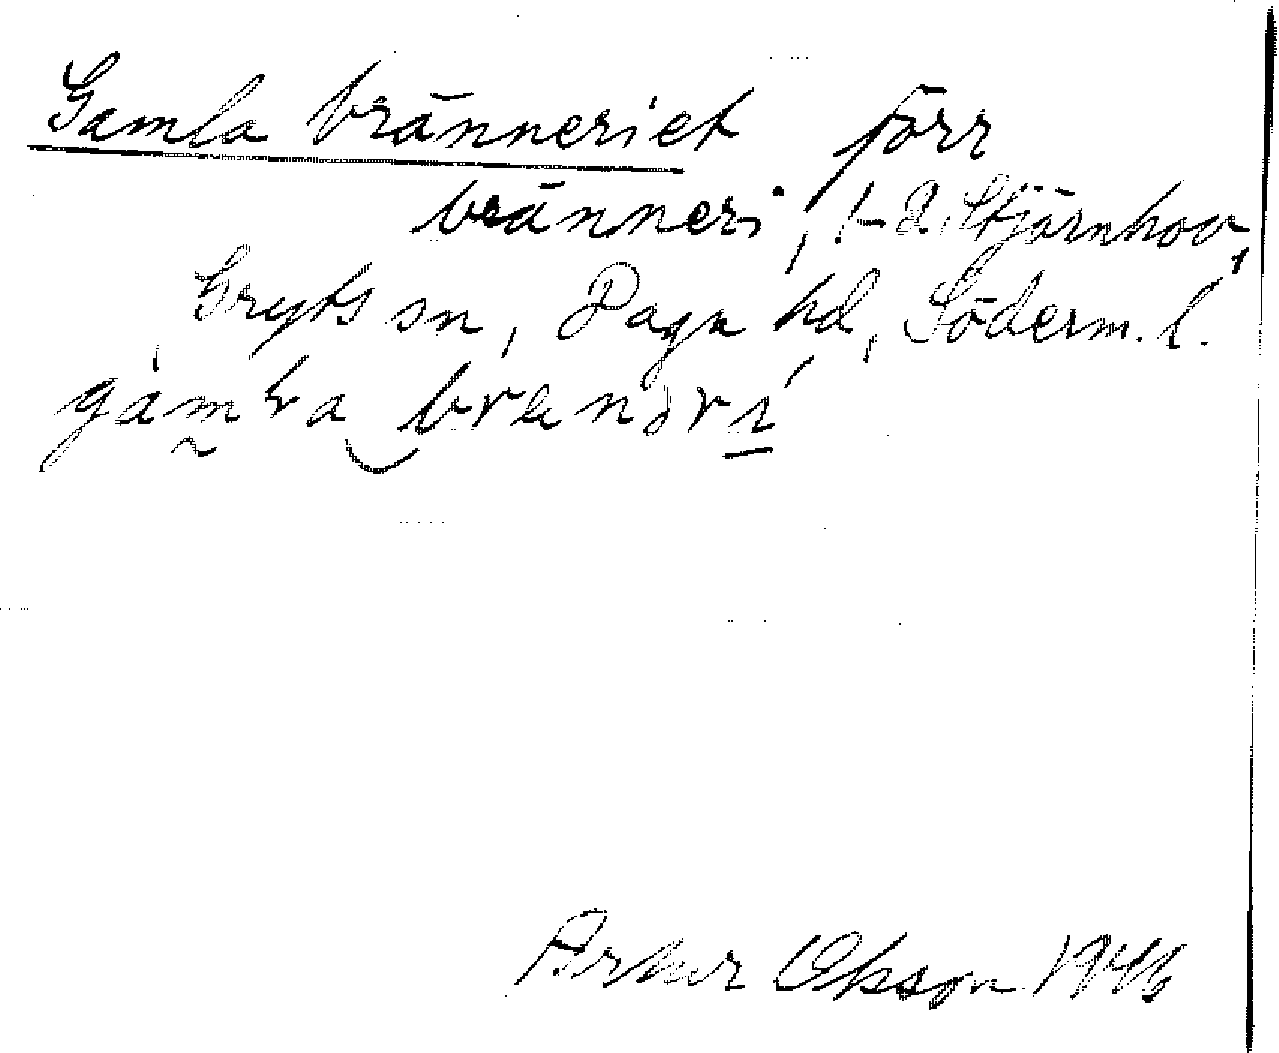 Gamla bränneriet förr
bränneri, t. Stjärnhov,
Gryts sn, Daga hd, Söderm. l.
Arthur Olsson 1946